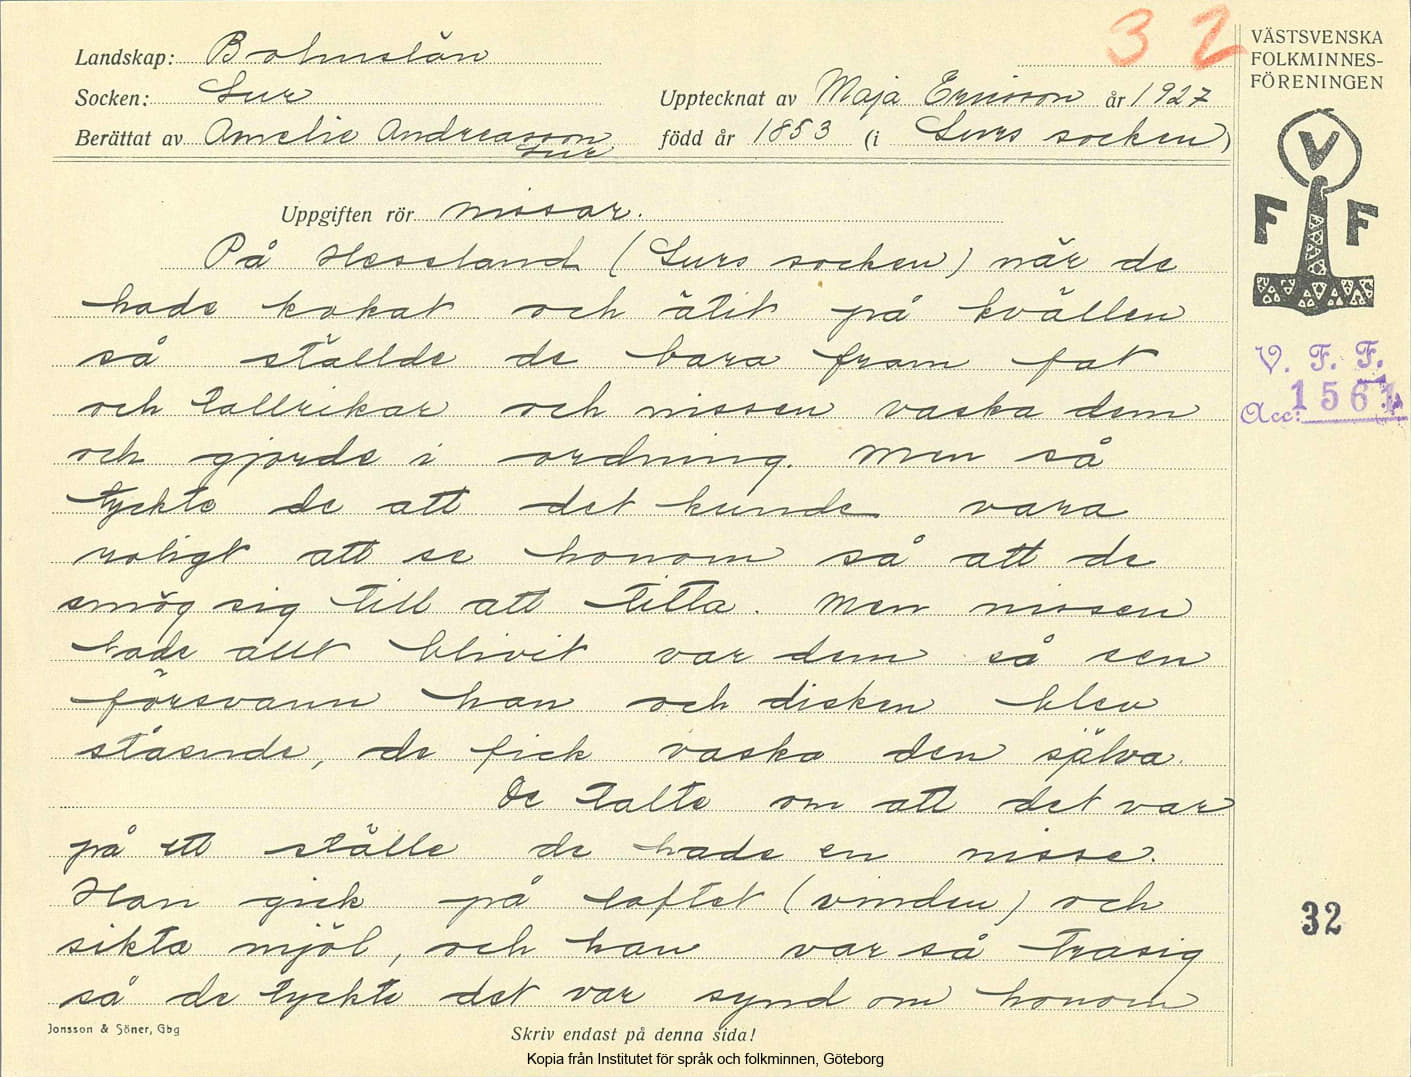 32
Landskap: Bohuslän
Socken: Lur
Upptecknat av Maja Ericsson år 1927
Berättat av Amelie Andreasson
Lur
född år 1853 (i Lurs socken)
Uppgiften rör nissar.
På Hesseland (Lurs socken) när de
hade kokat och ätit på kvällen
så ställde de bara fram fat
och tallrikar och nissen vaska dem
och gjorde i ordning. Men så
tyckte de att det kunde vara
roligt att se honom så att de
smög sig till att titta. Men nissen
hade allt blivit var dem så sen
försvann han och disken blev
stående, de fick vaska den själva.
De talte om att det var
på ett ställe de hade en nisse.
Han gick på loftet (vinden) och
sikta mjöl, och han var så trasig
så de tyckte det var synd om honom
Jonsson & Söner, Gbg
Skriv endast på denna sida!
Kopia från Institutet för språk och folkminnen, Göteborg
VÄSTSVENSKA
FOLKMINNES-
FÖRENINGEN
V
F F
V. F. F.
Acc: 1561
32